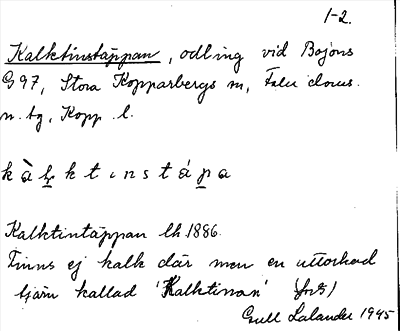 1-2.
Kalktinstäppan, odling vid Bojons
G 97, Stora Kopparbergs sn, Falu doms.
n. tg, Kopp. l.
kàlktinstápa
Kalktintäppan lk 1886.
Finns ej kalk där men en uttorkad
tjärn kallad 'Kalktinan'
Gull Lalander 1945